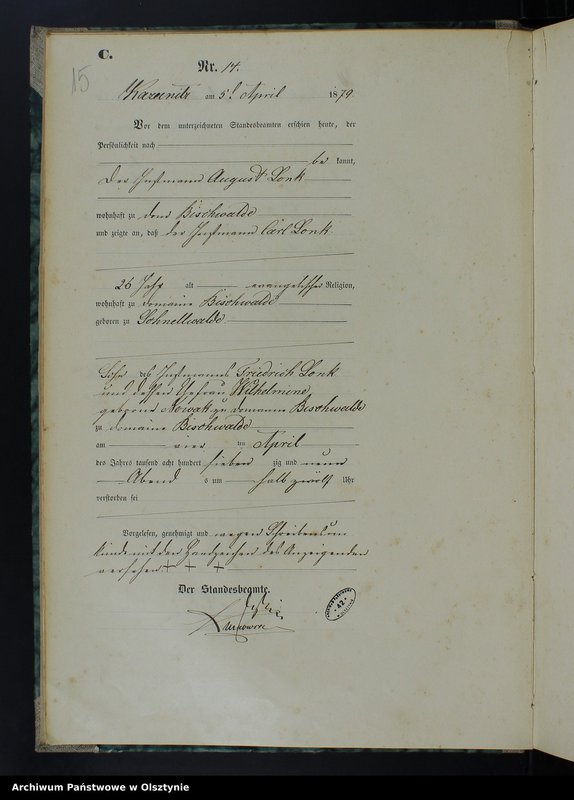 C.
15
Nr. 14.
am 5t April 1879
Vor dem unterzeichneten Standesbeamten erschien heute, der
Persönlichkeit nach
be kannt,
der Instmann August Lonk
wohnhaft zu dom Bischwalde
und zeigte an, daß der Instmann Carl Lonk
26 Jahr alt evangelischer Religion,
wohnhaft zu Domaine Bischwalde
geboren zu Schnellwalde
Sohn des Instmanns Friedrich Lonk
und dessen Ehefrau Wilhelmine
geborne Nowak zu Domaine Bischwalde
zu Domaine Bischwalde
am vier ten April
des Jahres tausend acht hundert sieben zig und neun
Abend s um halb zwölf Uhr
verstorben sei
Vorgelesen, genehmigt und wegen Schreibensun
kunde mit den Handzeichen des Anzeigenden
versehen + + +
Der Standesbeamte.
42
Archiwum Państwowe w Olsztynie